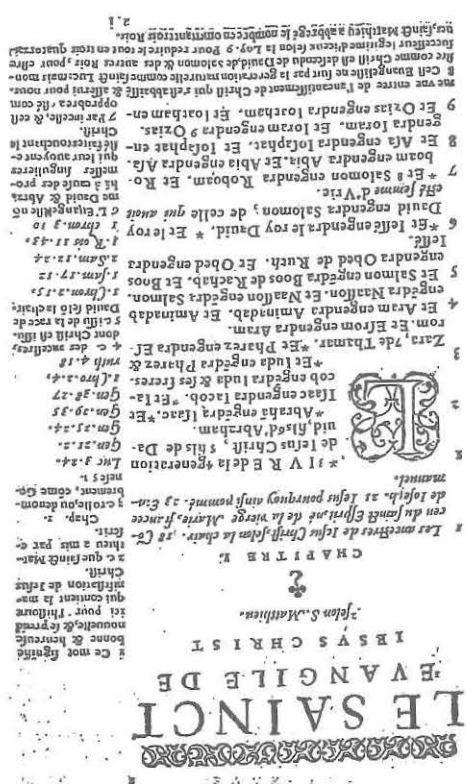 LE SAINCT
EVANGILE DE
IESVS CHRIST
²selon S. Matthieu.
CHAPITRE I.
1 Les ancestres de Iesus Christ, selon la chair. 18 Co-
ceu du sainct Esprit, né de la vierge Marie, fiancee
de Ioseph. 21 Iesus pourquoy ainsi nommé. 23 Em-
manuel.
*, ³LIVRE de la 4 generation
de Iesus Christ, 5 fils de Da-
uid, fils d'Abraham.
2 *Abrahã engẽdra Isaac. *Et
Isaac engendra Iacob. *Et Ia-
cob engẽdra Iuda & ses freres.
3 *Et Iuda engẽdra Pharez &
Zara, 7 de Thamar. *Et Pharez engendra Es-
rom. Et Esrom engendra Aram.
4 Et Aram engendra Aminadab. Et Aminadab
engẽdra Naasson. Et Naasson engẽdra Salmon.
5 Et Salmon engẽdra Boos de Rachab. Et Boos
engendra Obed de Ruth. Et Obed engendra
Iessé.
6 *Et Iessé engendra le roy Dauid. * Et le roy
Dauid engendra Salomon, de celle qui auoit
esté femme d'Vrie.
7 * Et 8 Salomon engendra Roboam. Et Ro-
boam engendra Abia. Et Abia engendra Asa.
8 Et Asa engendra Iosaphat. Et Iosaphat en-
gendra Ioram. Et Ioram engendra 9 Ozias.
9 Et Ozias engendra Ioatham. Et Ioatham en-
1 Ce mot signifie
bonne & heureuse
nouuelle, & se prend
ici pour l'histoire
qui contient la ma-
nifestation de Iesus
Christ.
2 c. que sainct Mat-
thieu a mis par e-
scrit.
Chap. 1.
3 c. rolle, ou denom-
brement, cõme Ge-
nese 5 1.
Luc 3.24.
Gen. 21.2.
Gen. 25.24.
Gen. 29.35
Gen. 38.27
1.Chro.2.4,
ruth 4.18
4 c. des ancestres,
dont Christ est issu.
5 c. issu de la race de
Dauid selõ la chair.
1.Chron.2.15,
1.sam.17.12
2.Sam.12.24
1.Rois 11.43,
1 chron. 3 10
6 L'Euangeliste nõ
me Dauid & Abra-
hã à cause des pro-
messes singulieres
qui leur auoyent e-
sté faites touchant le
Christ.
7 Par inceste, & cest
opprobre a esté com
me vne entree de l'aneantissement de Christ qui s'est abbaissé & asserui pour nous.
8 Cest Euangeliste ne suit pas la generation naturelle comme sainct Luc: mais mon-
stre comme Christ est descendu de Dauid, de Salomon & des autres Rois, pour estre
successeur legitime d'iceux selon la Loy. 9 Pour reduire le tout en trois quatorzai-
nes, sainct Matthieu a abregé le nombre en omettant trois Rois.
2.i